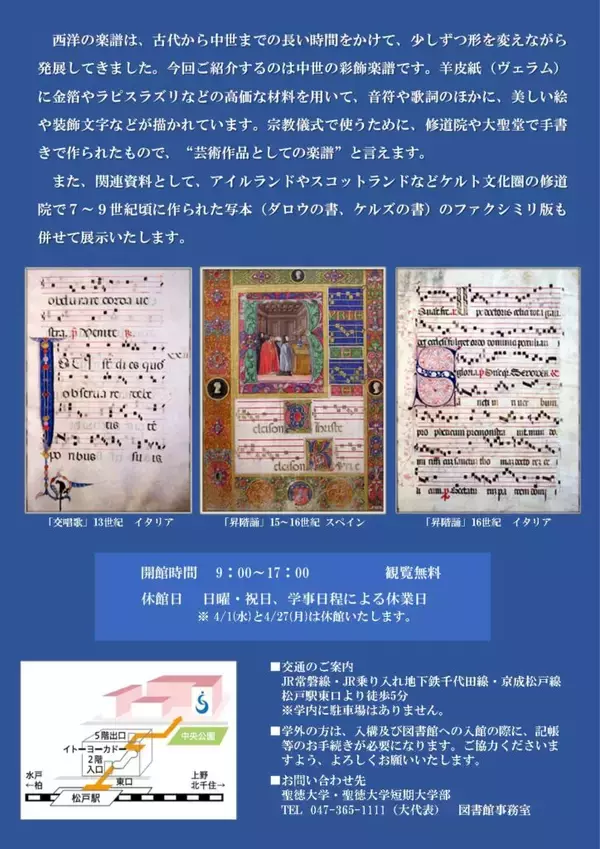 西洋の楽譜は、古代から中世までの長い時間をかけて、少しずつ形を変えながら
発展してきました。今回ご紹介するのは中世の彩飾楽譜です。羊皮紙（ヴェラム）
に金箔やラピスラズリなどの高価な材料を用いて、音符や歌詞のほかに、美しい絵
や装飾文字などが描かれています。宗教儀式で使うために、修道院や大聖堂で手書
きで作られたもので、“芸術作品としての楽譜”と言えます。
また、関連資料として、アイルランドやスコットランドなどケルト文化圏の修道
院で７～９世紀頃に作られた写本（ダロウの書、ケルズの書）のファクシミリ版も
併せて展示いたします。
「交唱歌」13世紀　イタリア
「昇階誦」15～16世紀 スペイン
「昇階誦」16世紀　イタリア
開館時間　9：00～17：00　観覧無料
休館日　日曜・祝日、学事日程による休業日
※ 4/1(水)と4/27(月)は休館いたします。
5階出口
イトーヨーカドー
2階
入口
中央公園
水戸
←柏
東口
上野
北千住→
松戸駅
■交通のご案内
JR常磐線・JR乗り入れ地下鉄千代田線・京成松戸線
松戸駅東口より徒歩5分
※学内に駐車場はありません。
■学外の方は、入構及び図書館への入館の際に、記帳
等のお手続きが必要になります。ご協力くださいま
すよう、よろしくお願いいたします。
■お問い合わせ先
聖徳大学・聖徳大学短期大学部
TEL 047-365-1111（大代表）　図書館事務室